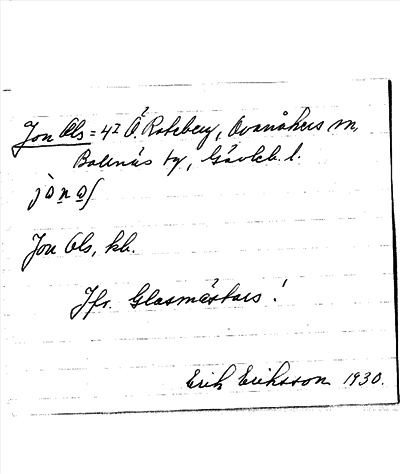 Jon Ols = 4² Ö. Roteberg, Ovanåkers sn,
Bollnäs tg, Gävleb. l.
jòn o̱ʃ
Jon Ols, kb.
Jfr. Glasmästars!
Erik Eriksson 1930.